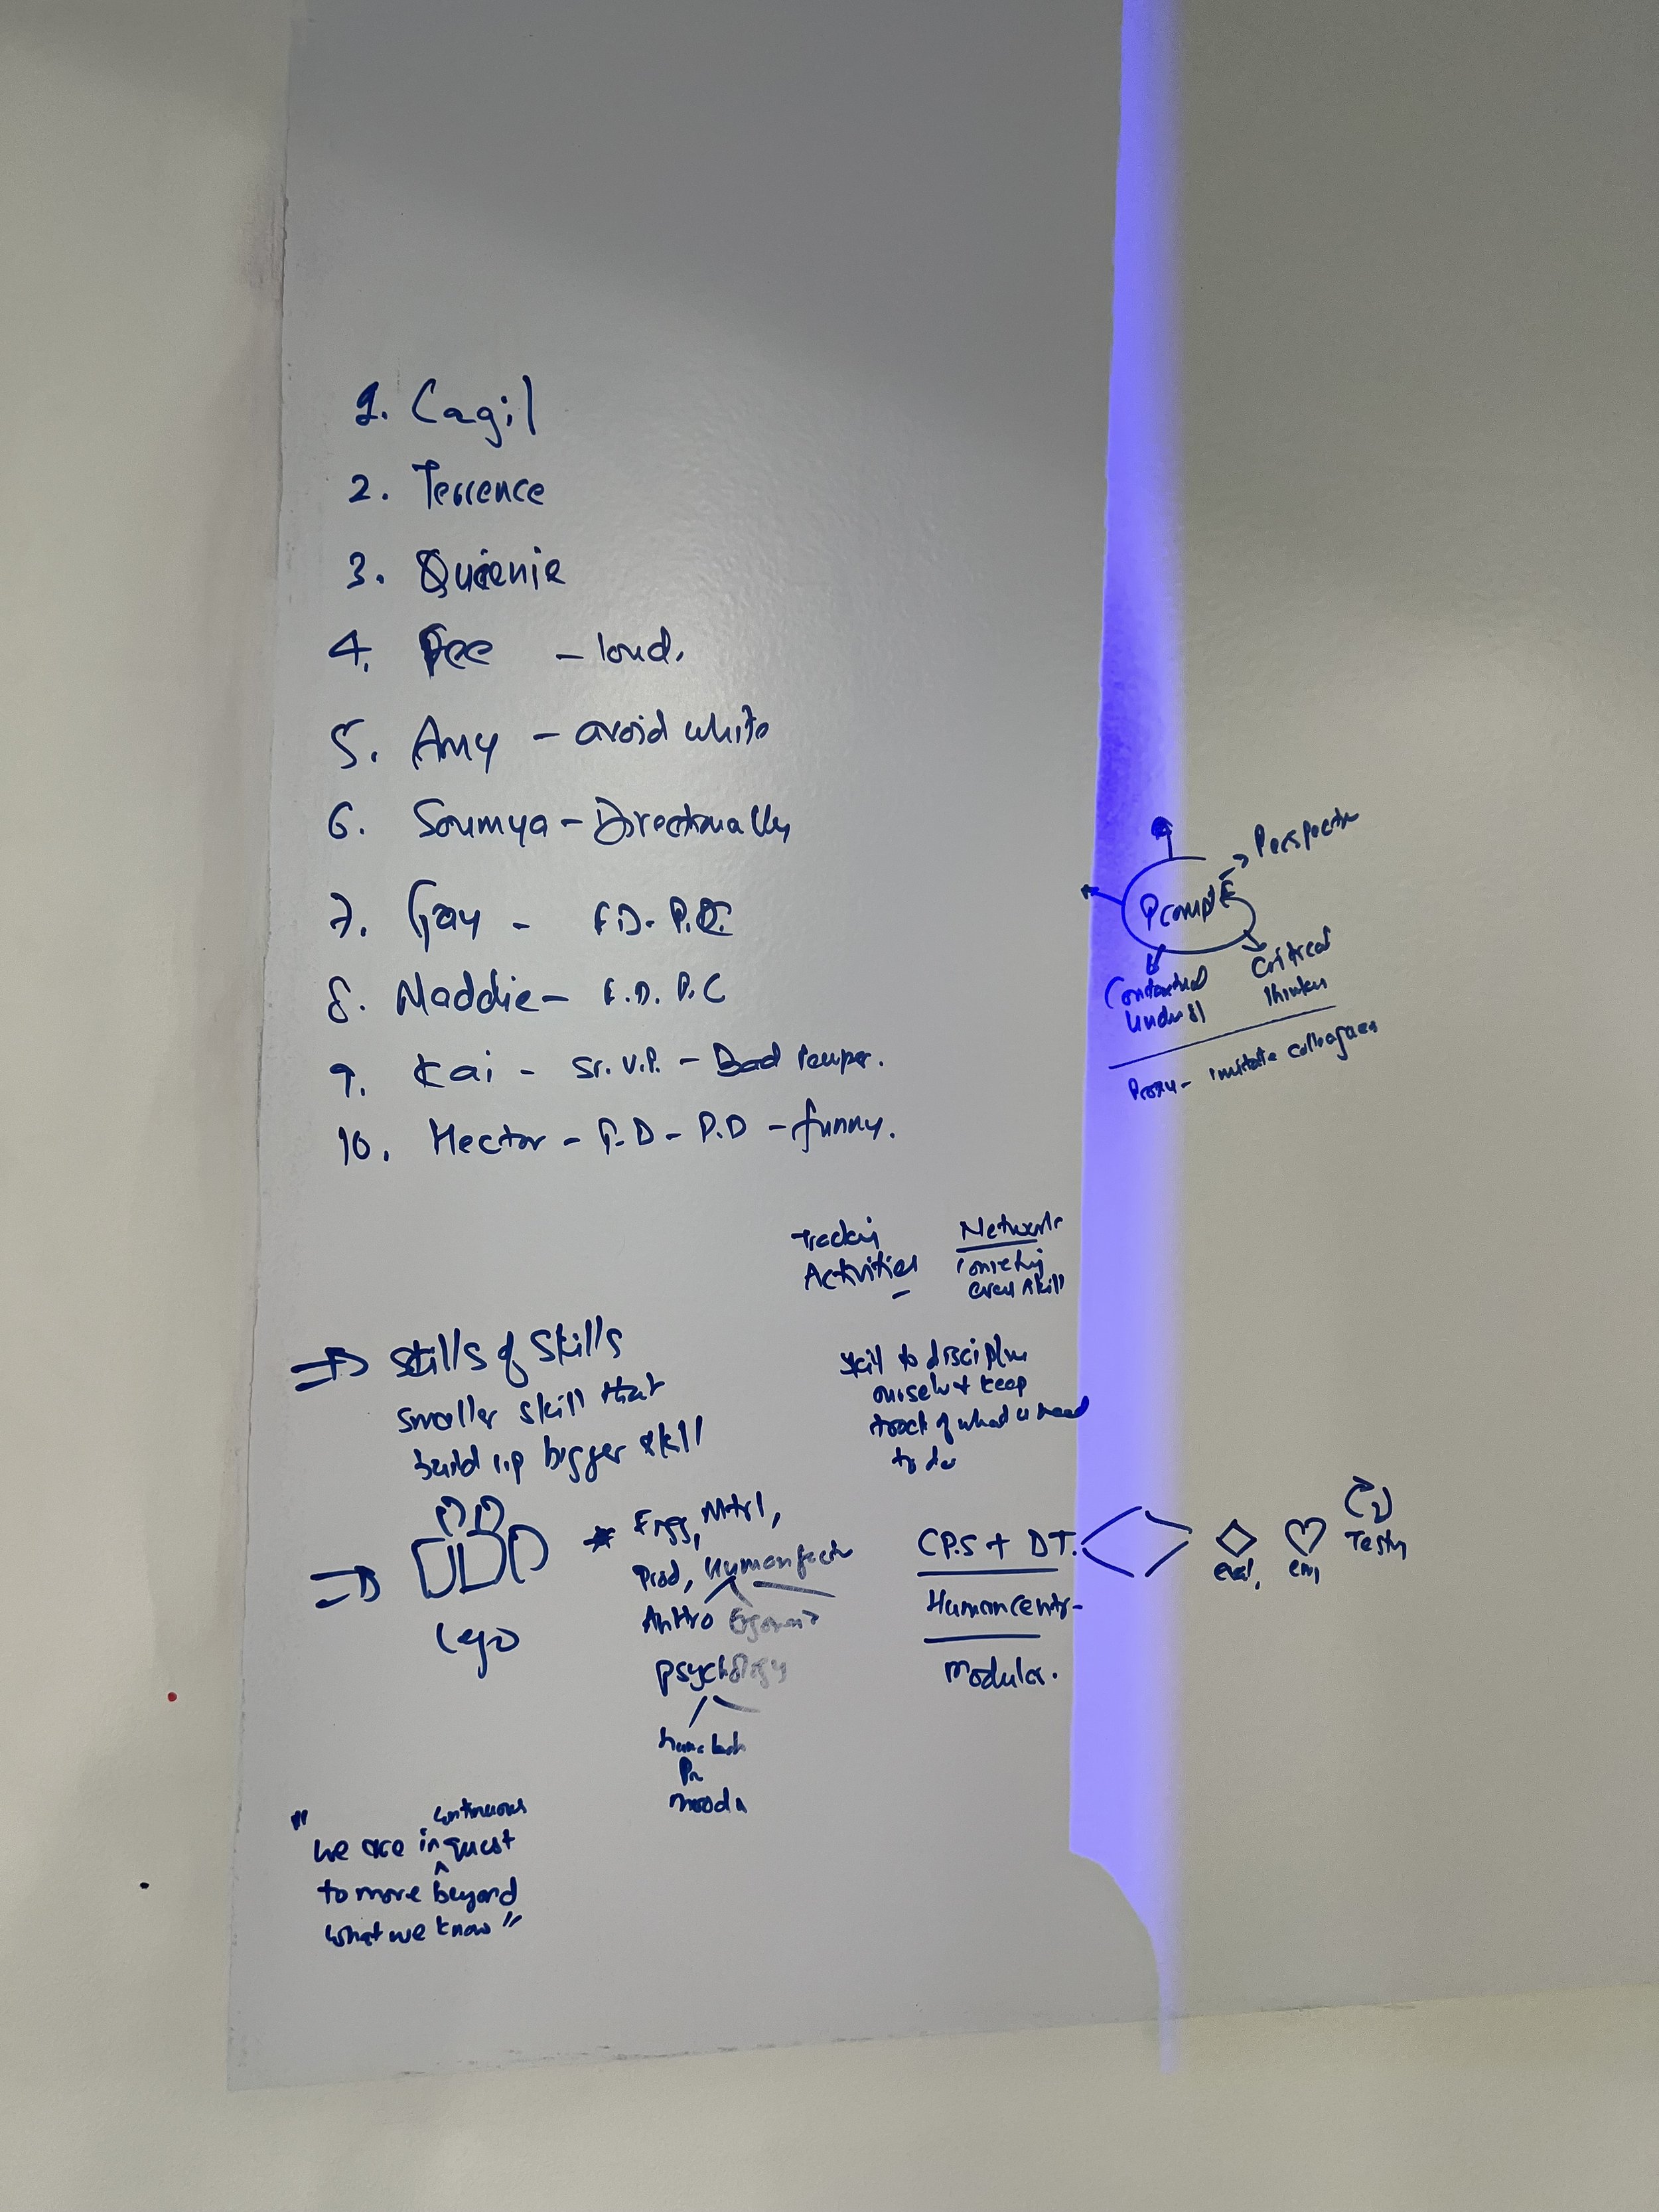 1. Cagil
2. Terrence
3. Queenie
4. Fee - loud.
5. Amy - avoid white
6. Soumya - Directionally
7. - F.D. P.C.
8. Maddie - F.D. P.C
9. Kai - Sr. V.P. - Bad temper.
10. Hector - F.D - P.D - funny.
Perspective
Prompt
Critical
Thinker
Contextual
Proxy - imitate colleagues
Activities
Network
skill
Skills of Skills
smaller skill that
build up bigger skill
skill to discipline
keep
track of what u need
to do
Lego
* Engg, Mtrl,
Prod, Human factor
Anthro
Psychology
CP.S + DT.
eval,
em,
Human centr-
modular.
"
continuous
we are in ^ quest
to move beyond
what we know"